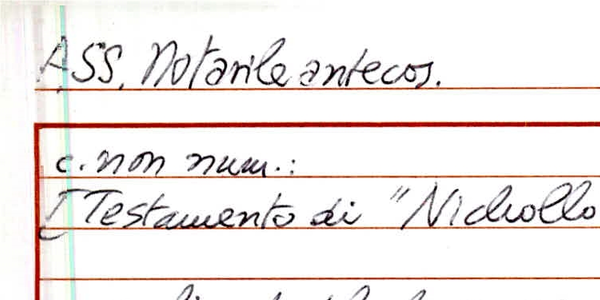 ASS. Notarile antecos.
c. non num.:
[Testamento di "Nichollo